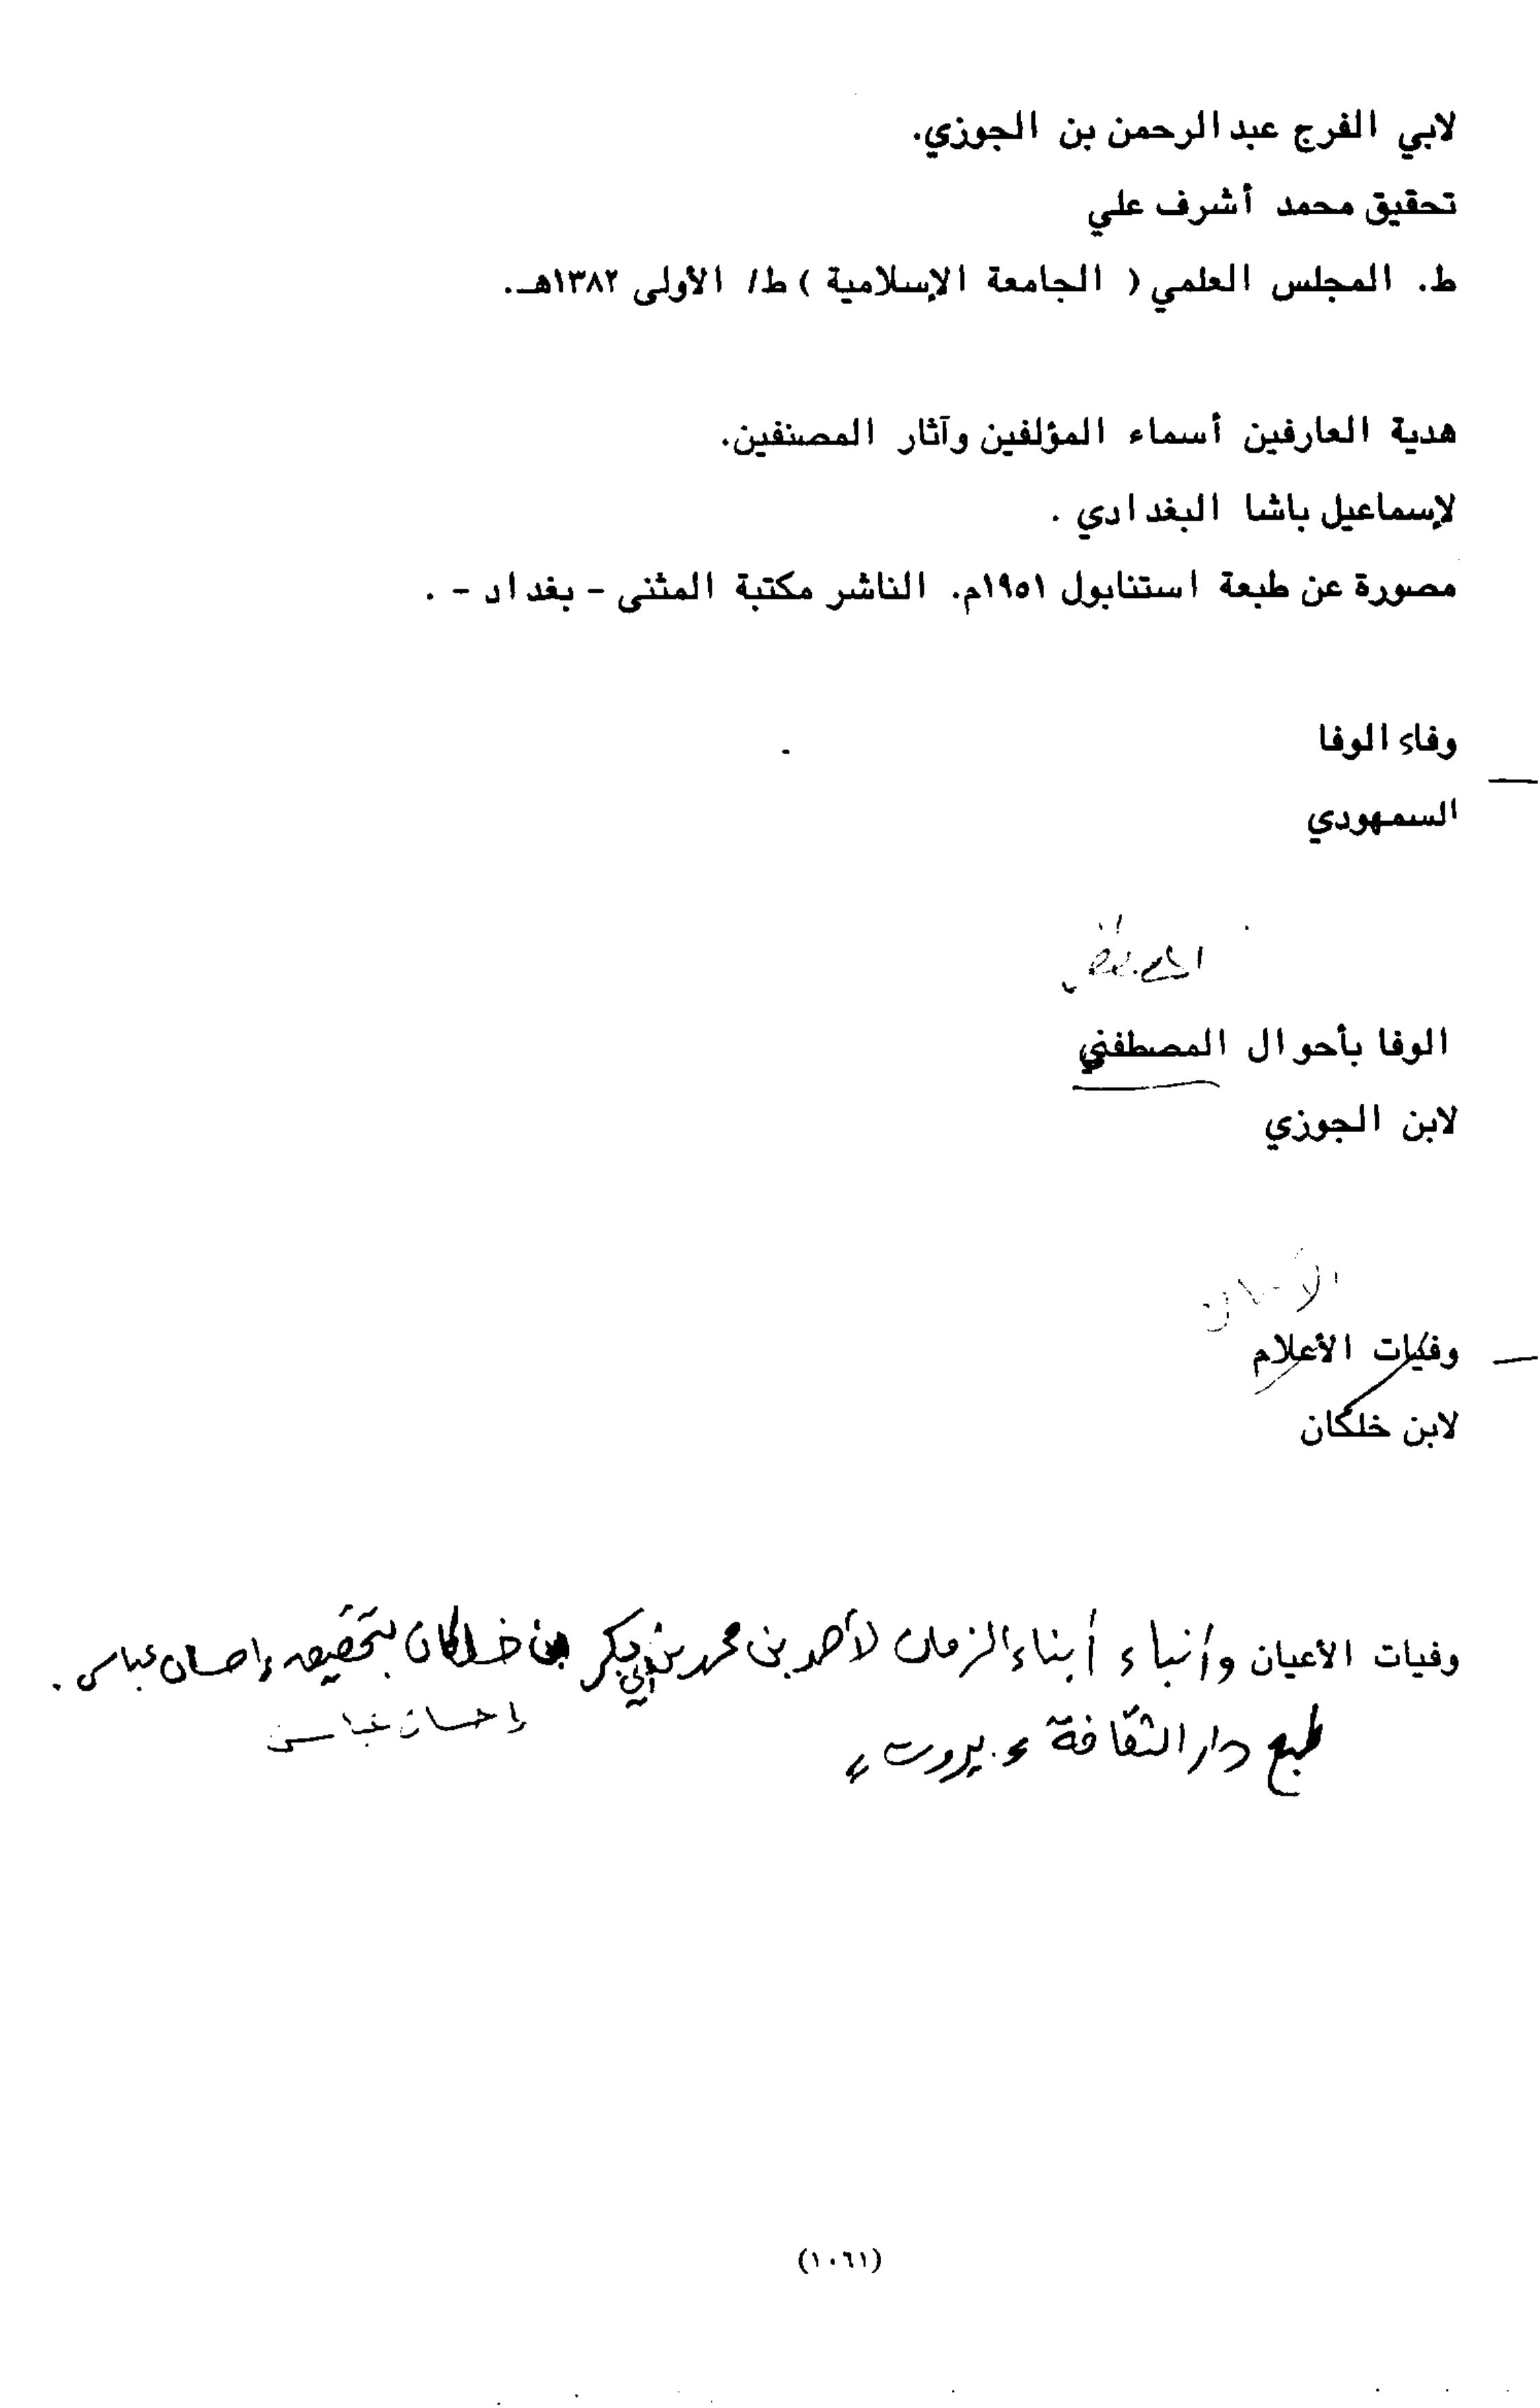 لابي الفرج عبدالرحمن بن الجوزي.
تحقيق محمد أشرف علي
ط. المجلس العلمي ( الجامعة الإسلامية ) ط/ الأولى ١٣٨٢هـ.
هدية العارفين أسماء المؤلفين وآثار المصنفين.
لإسماعيل باشا البغدادي .
مصورة عن طبعة استنابول ١٩٥١م. الناشر مكتبة المثنى - بغداد - .
وفاء الوفا
السمهودي
الوفا بأحوال المصطفي
لابن الجوزي
وفيات الأعلام
لابن خلكان
وفيات الأعيان وأنباء أبناء الزمان لأحمد بن محمد بن أبي بكر بن خلكان بتحقيق إحسان عباس .
إحسان عباس
طبع دار الثقافة بيروت
(١٠٦١)